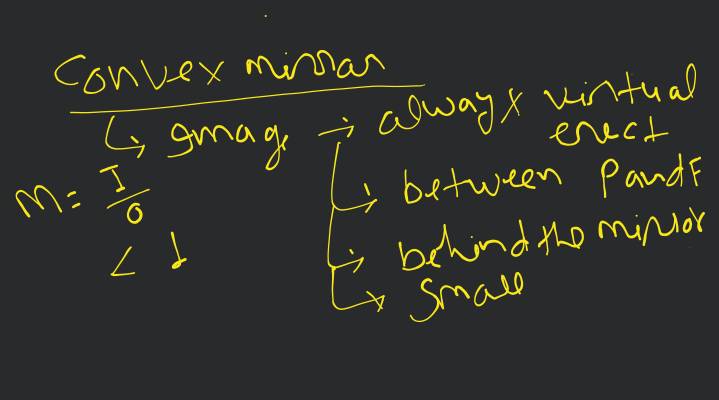 Convex mirror
↳ Image → always virtual
erect
M = I/O
< 1
→ between P and F
→ behind the mirror
→ small